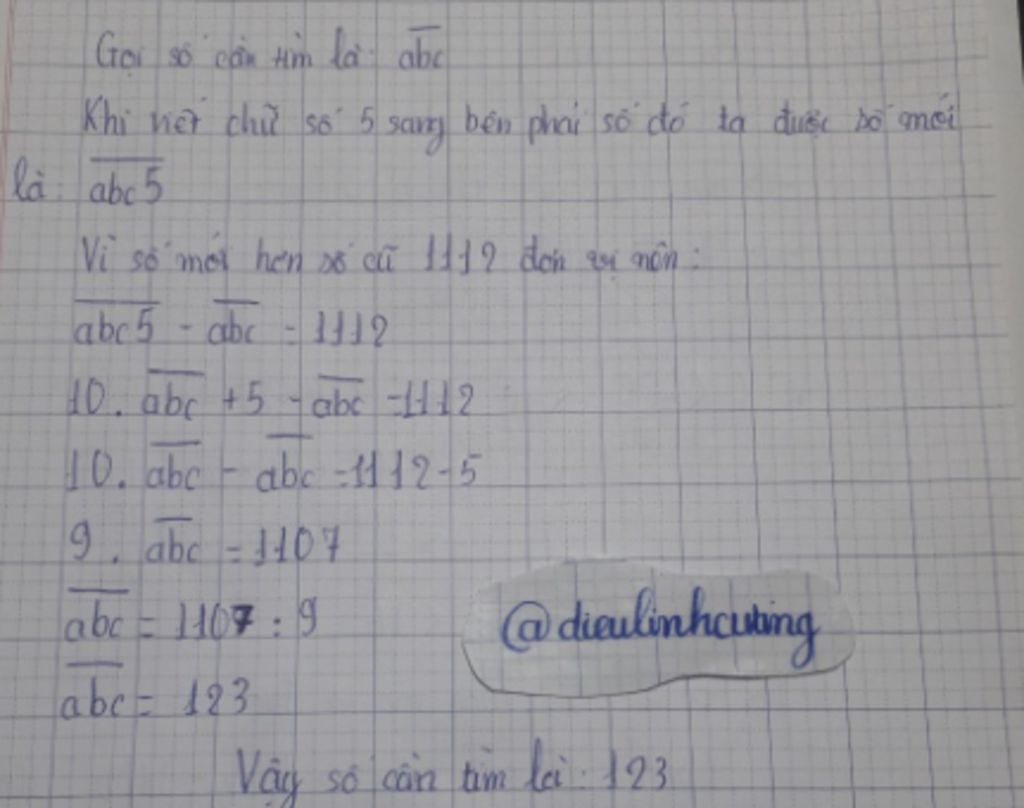 Gọi số cần tìm là: abc
Khi viết chữ số 5 sang bên phải số đó ta được số mới
là: abc5
Vì số mới hơn số cũ 1112 đơn vị nên:
abc5 - abc = 1112
10. abc + 5 - abc = 1112
10. abc - abc = 1112 - 5
9. abc = 1107
abc = 1107 : 9
abc = 123
@dieulinhcuting
Vậy số cần tìm là: 123